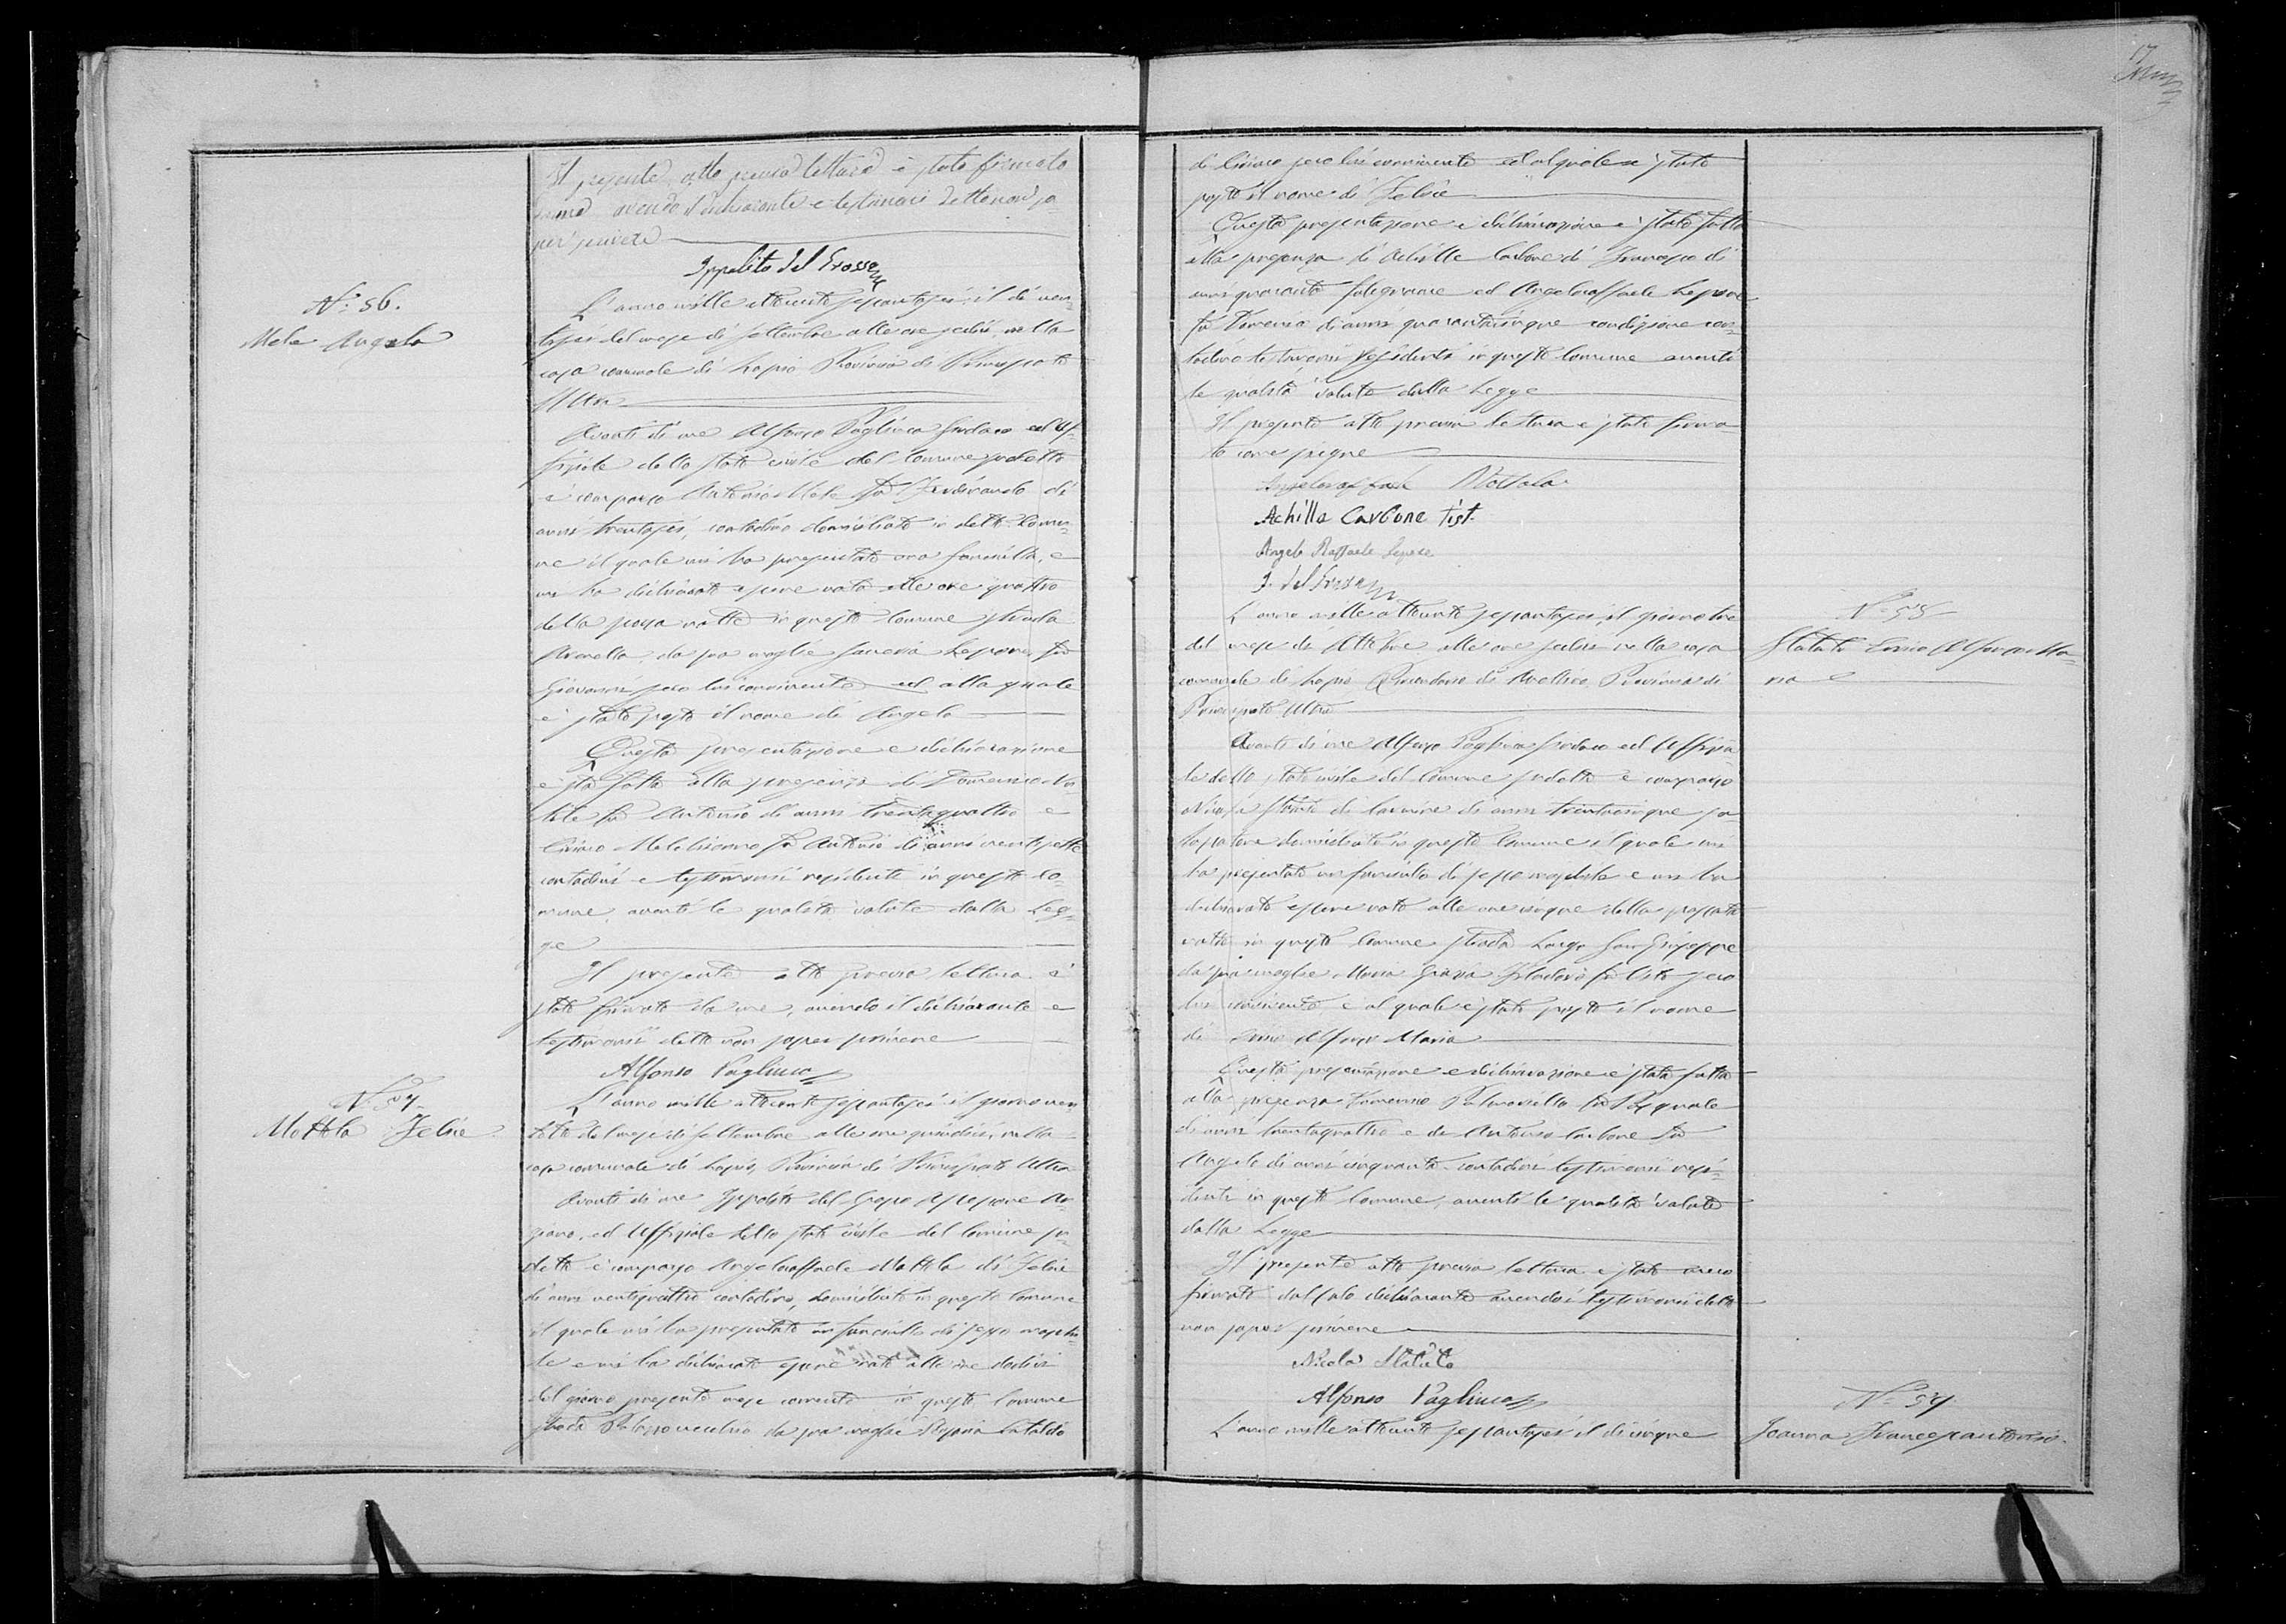 Il presente atto previa lettura è stato firmato
avendo il dichiarante e testimoni detto non sa
per scrivere
Ippolito del Grosso
N.° 56.
Mele Angela
L'anno mille ottocento sessantasei, il dì ven-
tisei del mese di Settembre alle ore sedici, nella
casa comunale di Lapio Provincia di Principato
Ultra
Avanti di me Alfonso Pagliuca Sindaco ed Uf-
fiziale dello stato civile del Comune sudetto
è comparso Antonio Mele fu Ferdinando di
anni trentasei, contadino domiciliato in detto Comu-
ne il quale mi ha presentato una fanciulla, e
mi ha dichiarato essere nata alle ore quattro
della scorsa notte in questo Comune strada
da sua moglie Lepore fu
Giovanni seco lui convivente ed alla quale
è stato posto il nome di Angela
Questa presentazione e dichiarazione
è sta fatta alla presenza di Domenico No-
bile fu Antonio di anni trentaquattro e
Ciriaco fu Antonio di anni ventisette
contadini e testimoni residenti in questo Co-
mune, aventi le qualità volute dalla Leg-
ge
Il presente atto previa lettura è
stato firmato da me, avendo il dichiarante e
testimoni detto non saper scrivere
Alfonso Pagliuca
N.° 57
Mottola Felice
L'anno mille ottocento sessantasei il giorno ven
totto del mese di Settembre alle ore quindici, nella
casa comunale di Lapio, Provincia di Principato Ultra
Avanti di me Ippolito del Grosso Assessore An-
ziano, ed Uffiziale dello stato civile del Comune su-
detto è comparso Angeloraffaele Mottola di Felice
di anni ventiquattro contadino, domiciliato in questo Comune
il quale mi ha presentato un fanciullo di sesso maschi-
le e mi ha dichiarato essere nato alle ore dodici
del giorno presente mese corrente in questo Comune
strada Palazzovecchio da sua moglie Cataldo
di Ciriaco seco lui convivente ed al quale è stato
posto il nome di Felice
Questa presentazione e dichiarazione è stata fatta
alla presenza di Achille Carbone di Francesco di
anni quaranta falegname ed Angeloraffaele Lepore
fu di anni quarantacinque condizione con-
tadino testimoni residenti in questo Comune aventi
le qualità volute dalla Legge
Il presente atto previa lettura è stato firma-
to come segue
Angeloraffaele Mottola
Achille Carbone Test.
Angelo Raffaele Lepore
I. del Grosso
N.° 58
Statuto Alfonso Ma-
ria
L'anno mille ottocento sessantasei, il giorno tre
del mese di Ottobre alle ore sedici nella casa
comunale di Lapio Circondario di Avellino, Provincia di
Principato Ultra
Avanti di me Alfonso Pagliuca Sindaco ed Uffizia
le dello stato civile del Comune sudetto è comparso
Nicola Statuto di Carmine di anni trentacinque
domiciliato in questo Comune il quale mi
ha presentato un fanciullo di sesso maschile e mi ha
dichiarato essere nato alle ore cinque della passata
notte in questo Comune strada Largo San Giuseppe
da sua moglie Maria Grazia fu Vito seco
lui convivente, e al quale è stato posto il nome
di Alfonso Maria
Questa presentazione e dichiarazione è stata fatta
alla presenza Domenico Palmariello fu Pasquale
di anni trentaquattro e di Antonio Carbone fu
Angelo di anni cinquanta contadini testimoni resi-
denti in questo Comune, aventi le qualità volute
dalla Legge
Il presente atto previa lettura è stato meco
firmato dal solo dichiarante avendo i testimoni detto
non saper scrivere
Nicola Statuto
Alfonso Pagliuca
N.° 59
Joanna Francescantonio
L'anno mille ottocento sessantasei il dì cinque